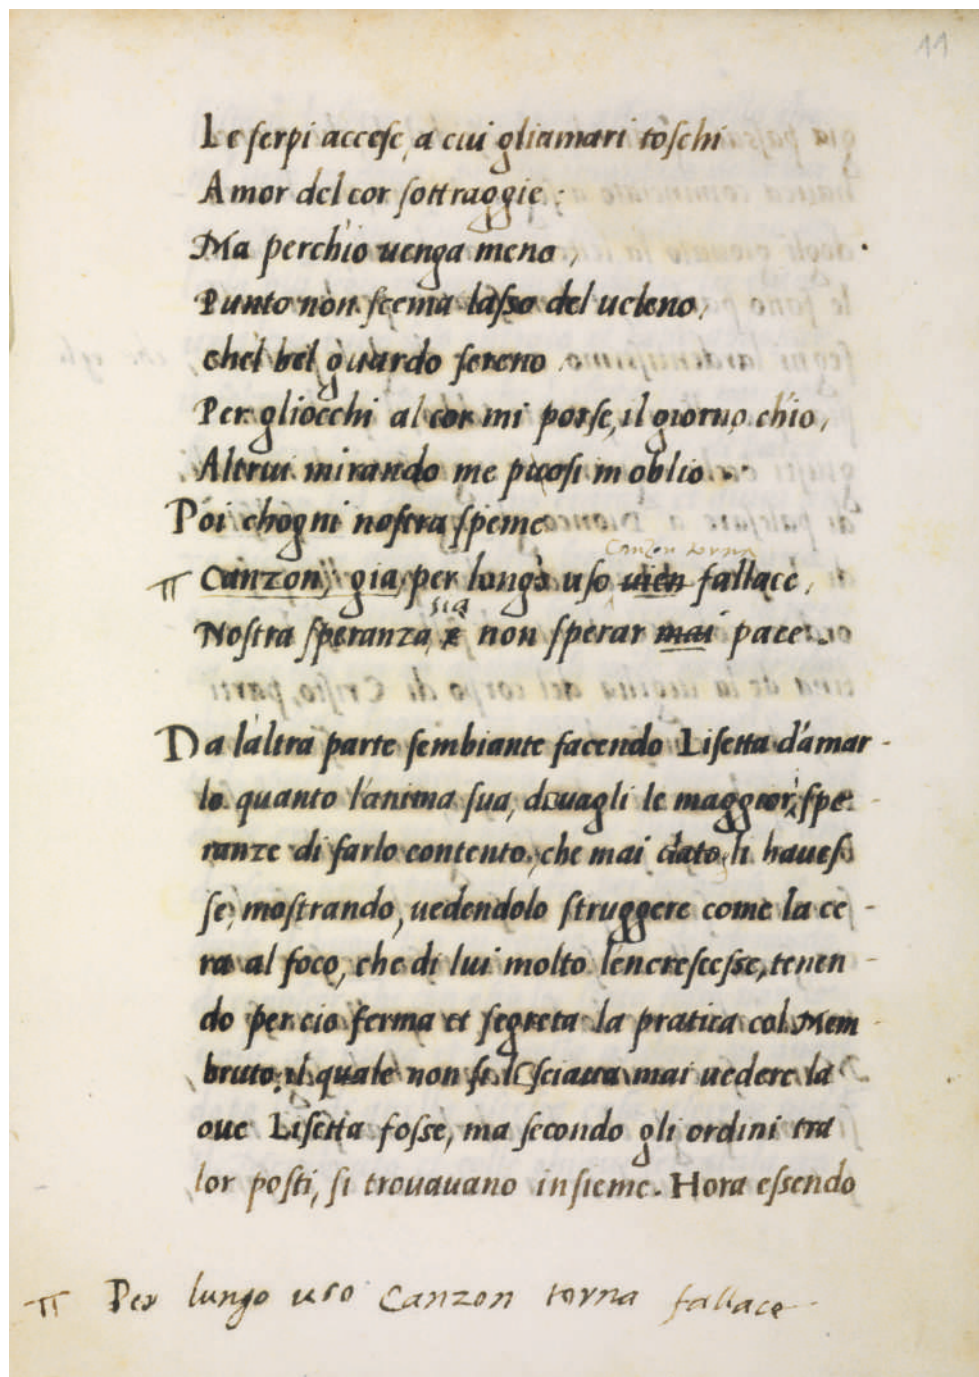 11
Le serpi accese, a cui gliamari toschi
Amor del cor sottraggie:
Ma perch'io uenga meno,
Punto non scema lasso del ueleno,
chel bel guardo sereno
Per gliocchi al cor mi porse, il giorno, ch'io,
Altrui mirando me puosi in oblio.
Poi chogni nostra speme
Canzon torna
π Canzon, gia per lungo uso uien fallace,
sia
Nostra speranza, è non sperar mai pace.
Da l'altra parte sembiante facendo Lisetta d'amar-
lo quanto l'anima sua, dauagli le maggior, spe
ranze di farlo contento, che mai dato li haues
se, mostrando, uedendolo struggere come la ce-
ra al foco, che di lui molto l'encrescesse, tenen-
do per cio ferma et segreta la pratica col Mem
bruto, il quale non si lasciaua mai uedere la
oue Lisetta fosse, ma secondo gli ordini tra
lor posti, si trouauano insieme. Hora essendo
π Per lungo uso Canzon torna fallace